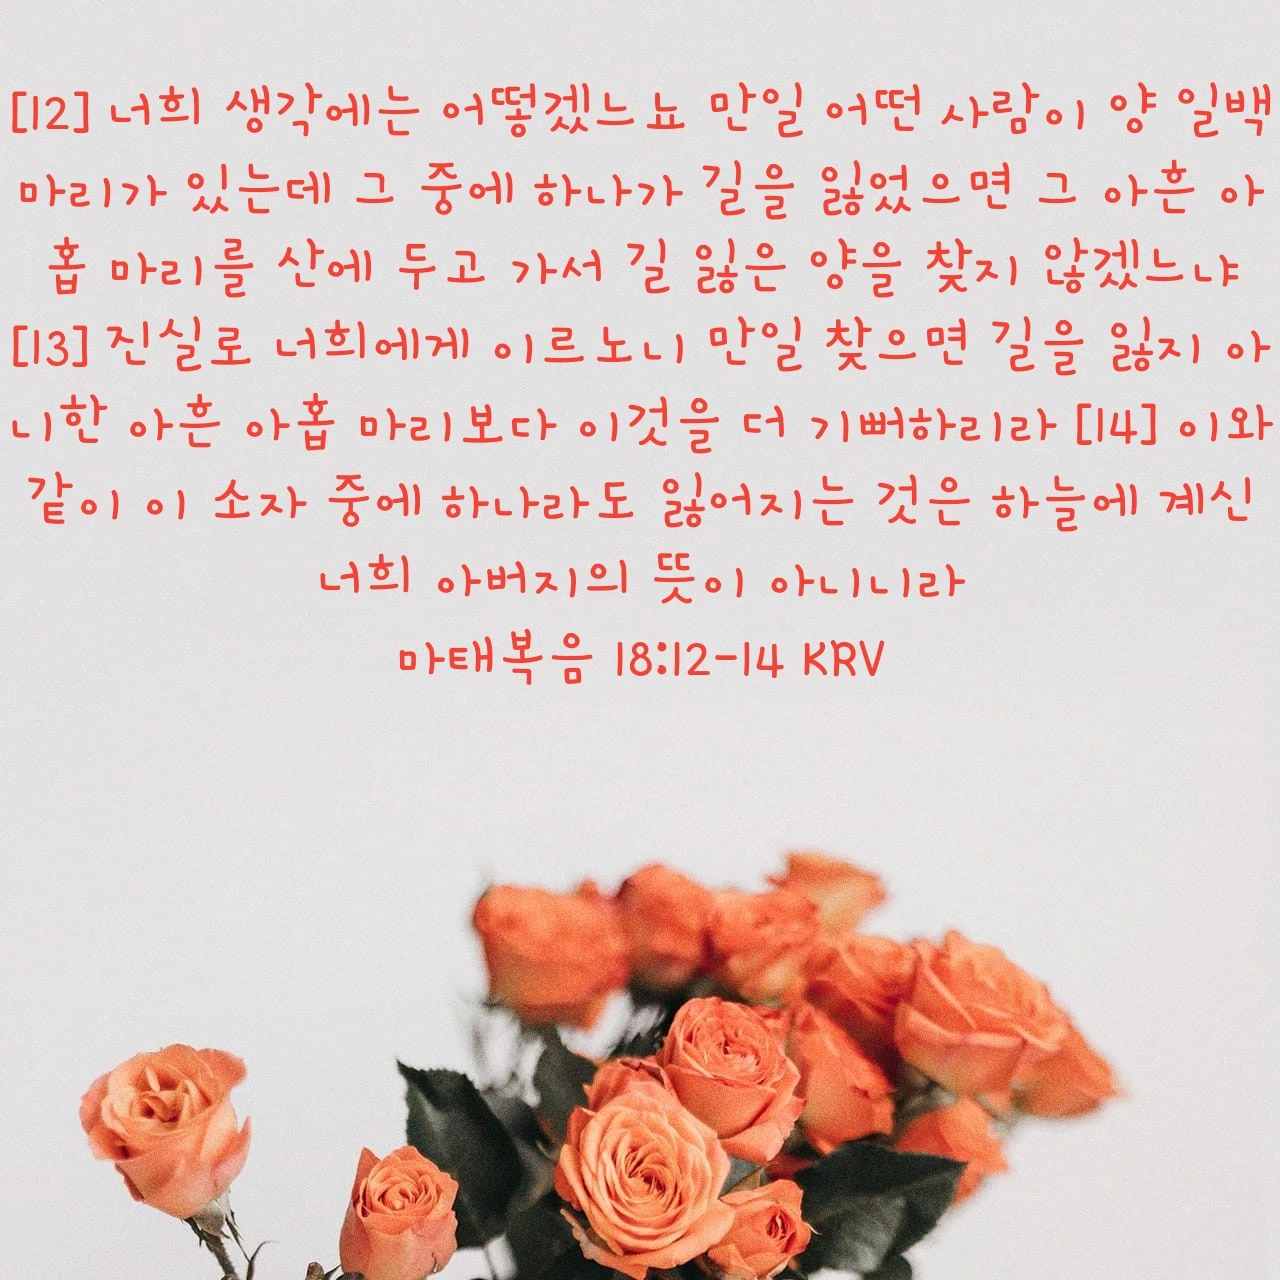 [12] 너희 생각에는 어떻겠느뇨 만일 어떤 사람이 양 일백
마리가 있는데 그 중에 하나가 길을 잃었으면 그 아흔 아
홉 마리를 산에 두고 가서 길 잃은 양을 찾지 않겠느냐
[13] 진실로 너희에게 이르노니 만일 찾으면 길을 잃지 아
니한 아흔 아홉 마리보다 이것을 더 기뻐하리라 [14] 이와
같이 이 소자 중에 하나라도 잃어지는 것은 하늘에 계신
너희 아버지의 뜻이 아니니라
마태복음 18:12-14 KRV